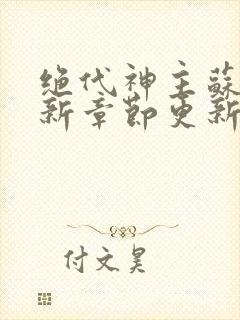 绝代神主蘇
新章节更新
付文昊